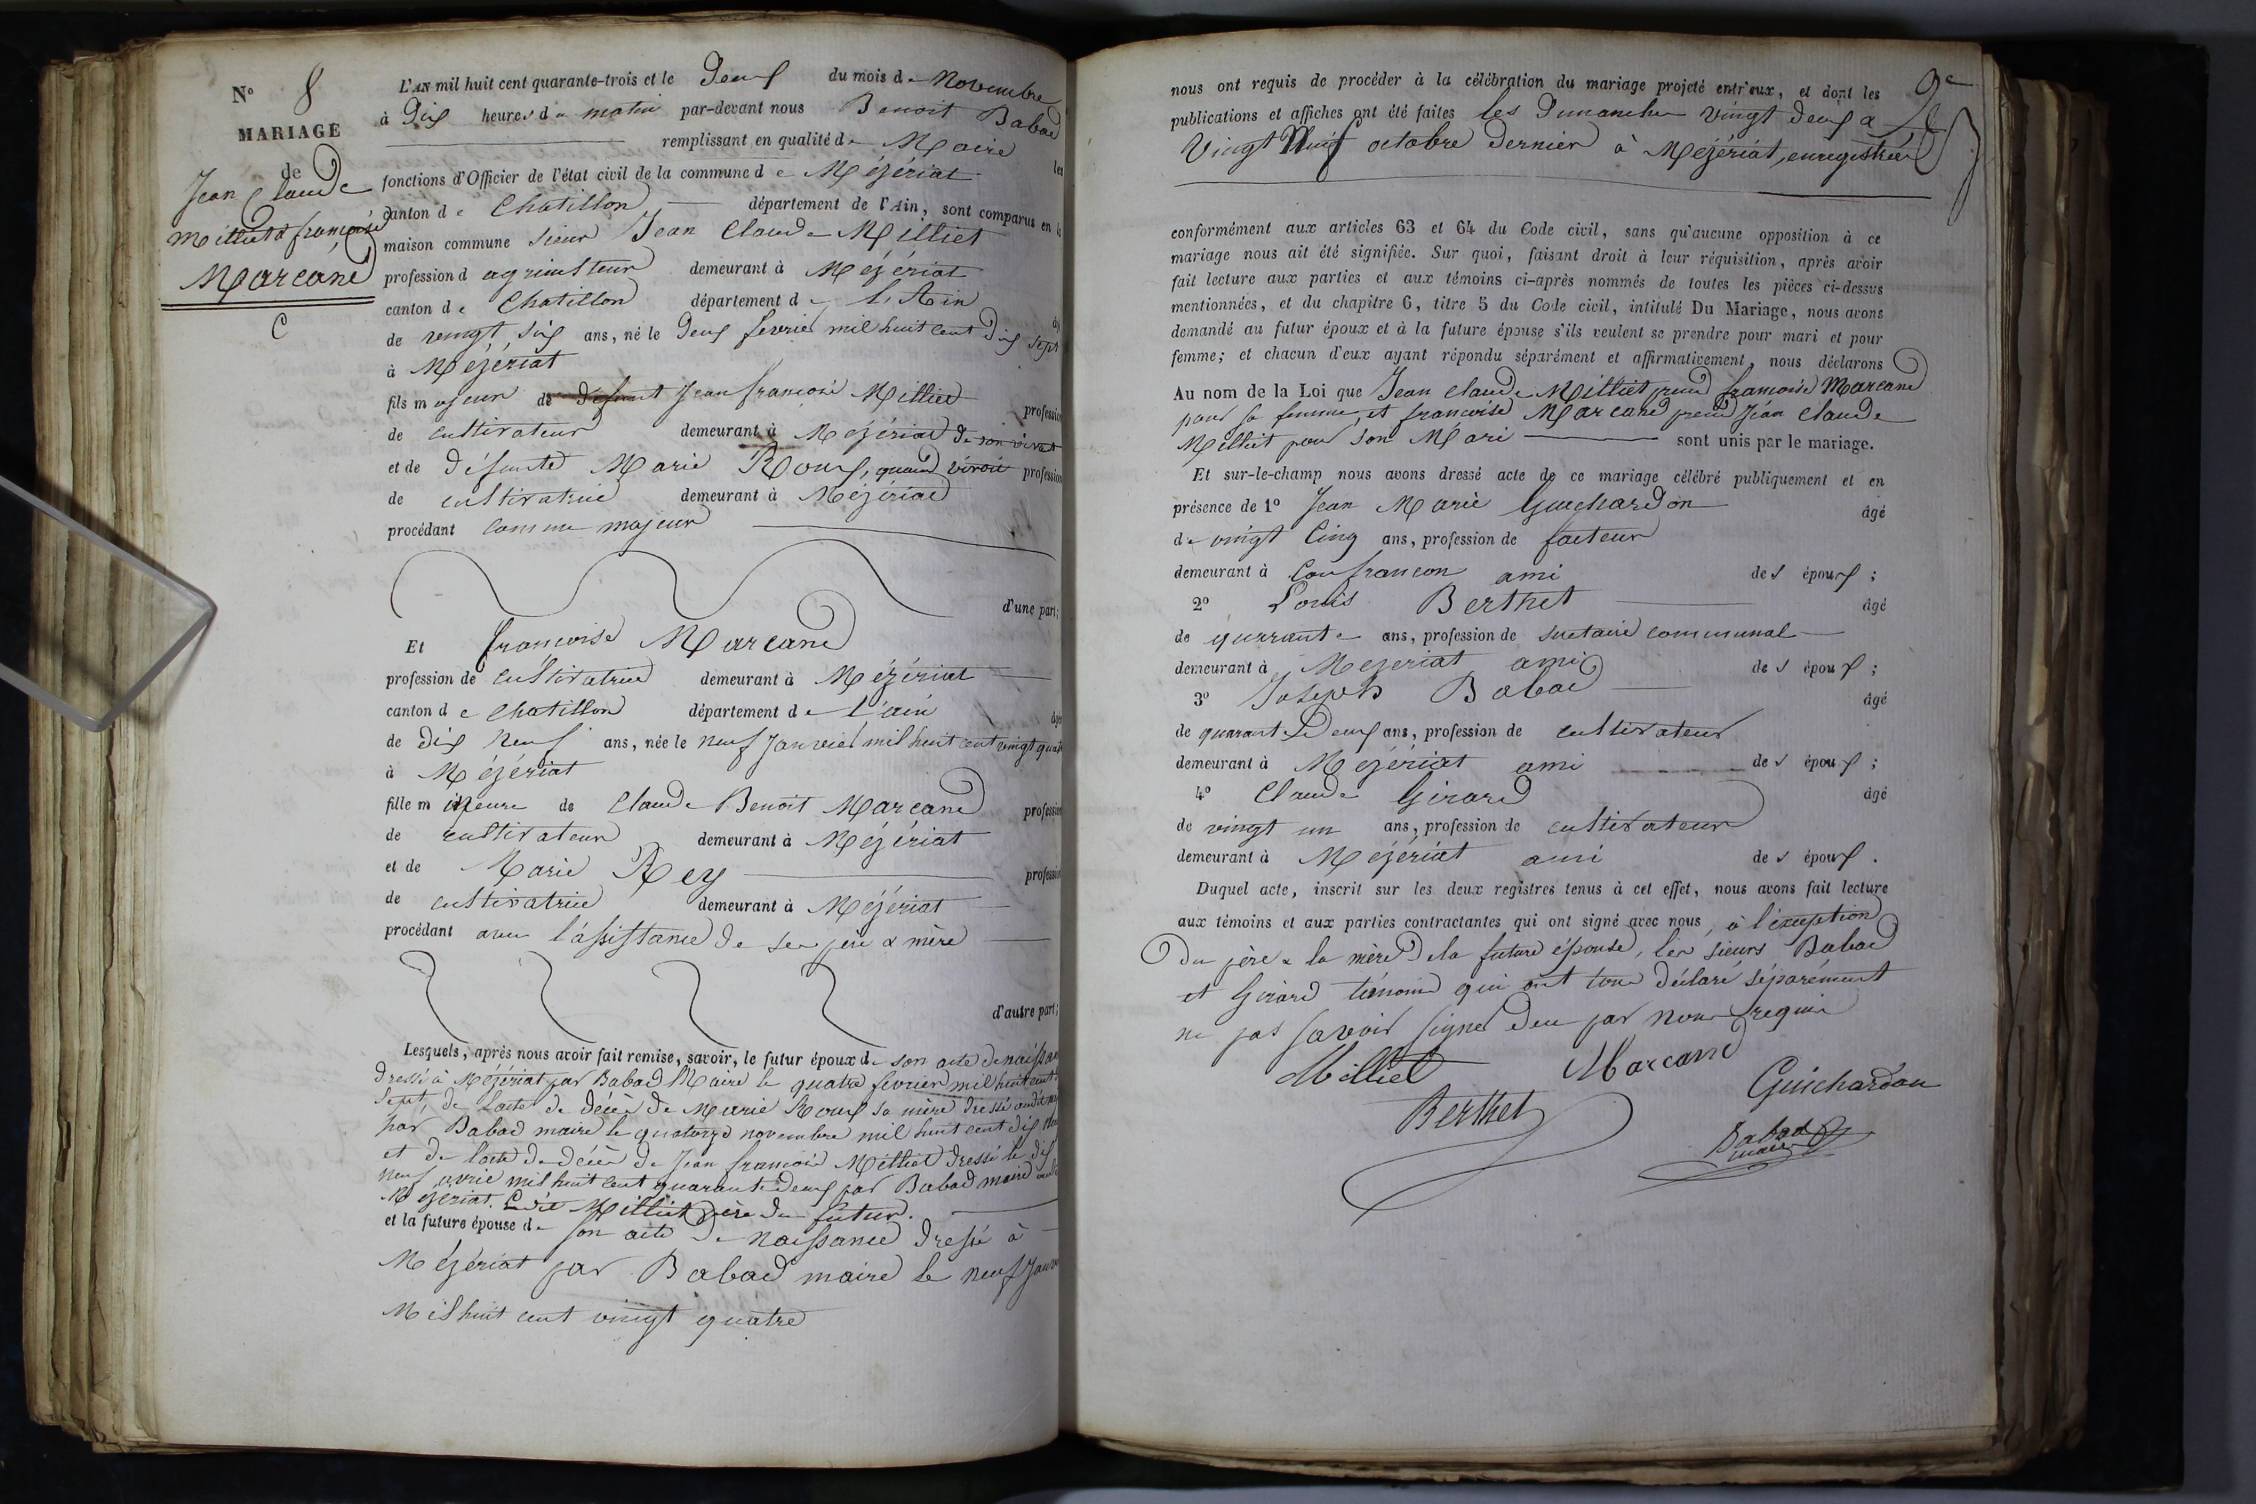 N° 8
MARIAGE
de
Jean Claude
Milliet & françoise
Marcand
C
L'AN mil huit cent quarante-trois et le Deux du mois de Novembre
à Dix heures du matin par-devant nous Benoit Babad
remplissant en qualité de Maire les
fonctions d'Officier de l'état civil de la commune de Mézériat
canton de Chatillon département de l'Ain, sont comparus en la
maison commune sieur Jean Claude Milliet
profession d agriculteur demeurant à Mézériat
canton de Chatillon département de L'Ain
de vingt six ans, né le Deux fevrier mil huit cent Dix sept
à Mézériat
fils majeur de défunt Jean françois Milliet profession
de cultivateur demeurant à Mézériat de son vivant
et de Défunte Marie Roux, quand vivoit profession
de cultivatrice demeurant à Mézériat
procédant comme majeur
d'une part;
Et françoise Marcand
profession de cultivatrice demeurant à Mézériat
canton de Chatillon département de L'ain
de dix neuf ans, née le neuf Janvier mil huit cent vingt quatre
à Mézériat
fille mineure de Claude Benoit Marcand profession
de cultivateur demeurant à Mézériat
et de Marie Rey profession
de cultivatrice demeurant à Mézériat
procédant avec l'assistance de ses père & mère
d'autre part;
Lesquels, après nous avoir fait remise, savoir, le futur époux de son acte de naissance
Dressé à Mézériat par Babad Maire le quatre fevrier mil huit cent
sept, de l'acte de décès de Marie Roux sa mère dressé
par Babad maire le quatorze novembre mil huit cent dix
et de l'acte de décès de Jean françois Milliet dressé le dix
neuf avril mil huit cent quarante deux par Babad maire
Mézériat. Le dit Milliet père du futur.
et la future épouse de son acte de naissance dressé à
Mézériat par Babad maire le neuf Janvier
Mil huit cent vingt quatre
nous ont requis de procéder à la célébration du mariage projeté entr'eux, et dont les
publications et affiches ont été faites les Dimanches vingt deux &
Vingt Neuf octobre dernier à Mézériat, enregistrées
conformément aux articles 63 et 64 du Code civil, sans qu'aucune opposition à ce
mariage nous ait été signifiée. Sur quoi, faisant droit à leur réquisition, après avoir
fait lecture aux parties et aux témoins ci-après nommés de toutes les pièces ci-dessus
mentionnées, et du chapitre 6, titre 5 du Code civil, intitulé Du Mariage, nous avons
demandé au futur époux et à la future épouse s'ils veulent se prendre pour mari et pour
femme; et chacun d'eux ayant répondu séparément et affirmativement, nous déclarons
Au nom de la Loi que Jean Claude Milliet prend françoise Marcand
pour sa femme, et francoise Marcand prend Jean Claude
Milliet pour son Mari sont unis par le mariage.
Et sur-le-champ nous avons dressé acte de ce mariage célébré publiquement et en
présence de 1° Jean Marie Guichardon âgé
de vingt Cinq ans, profession de facteur
demeurant à Confrancon ami des époux;
2° Louis Berthet âgé
de quarante ans, profession de secretaire communal
demeurant à Mezeriat ami des époux;
3° Joseph Babad âgé
de quarante Deux ans, profession de cultivateur
demeurant à Mézériat ami des époux;
4° Claude Girard âgé
de vingt un ans, profession de cultivateur
demeurant à Mézériat ami des époux.
Duquel acte, inscrit sur les deux registres tenus à cet effet, nous avons fait lecture
aux témoins et aux parties contractantes qui ont signé avec nous, à l'exception
Du père & la mère de la future épouse, les sieurs Babad
et Girard témoins qui ont tous déclaré séparément
ne pas savoir signer de ce par nous requis
Milliet Marcand
Guichardon
Berthet
Babad
maire